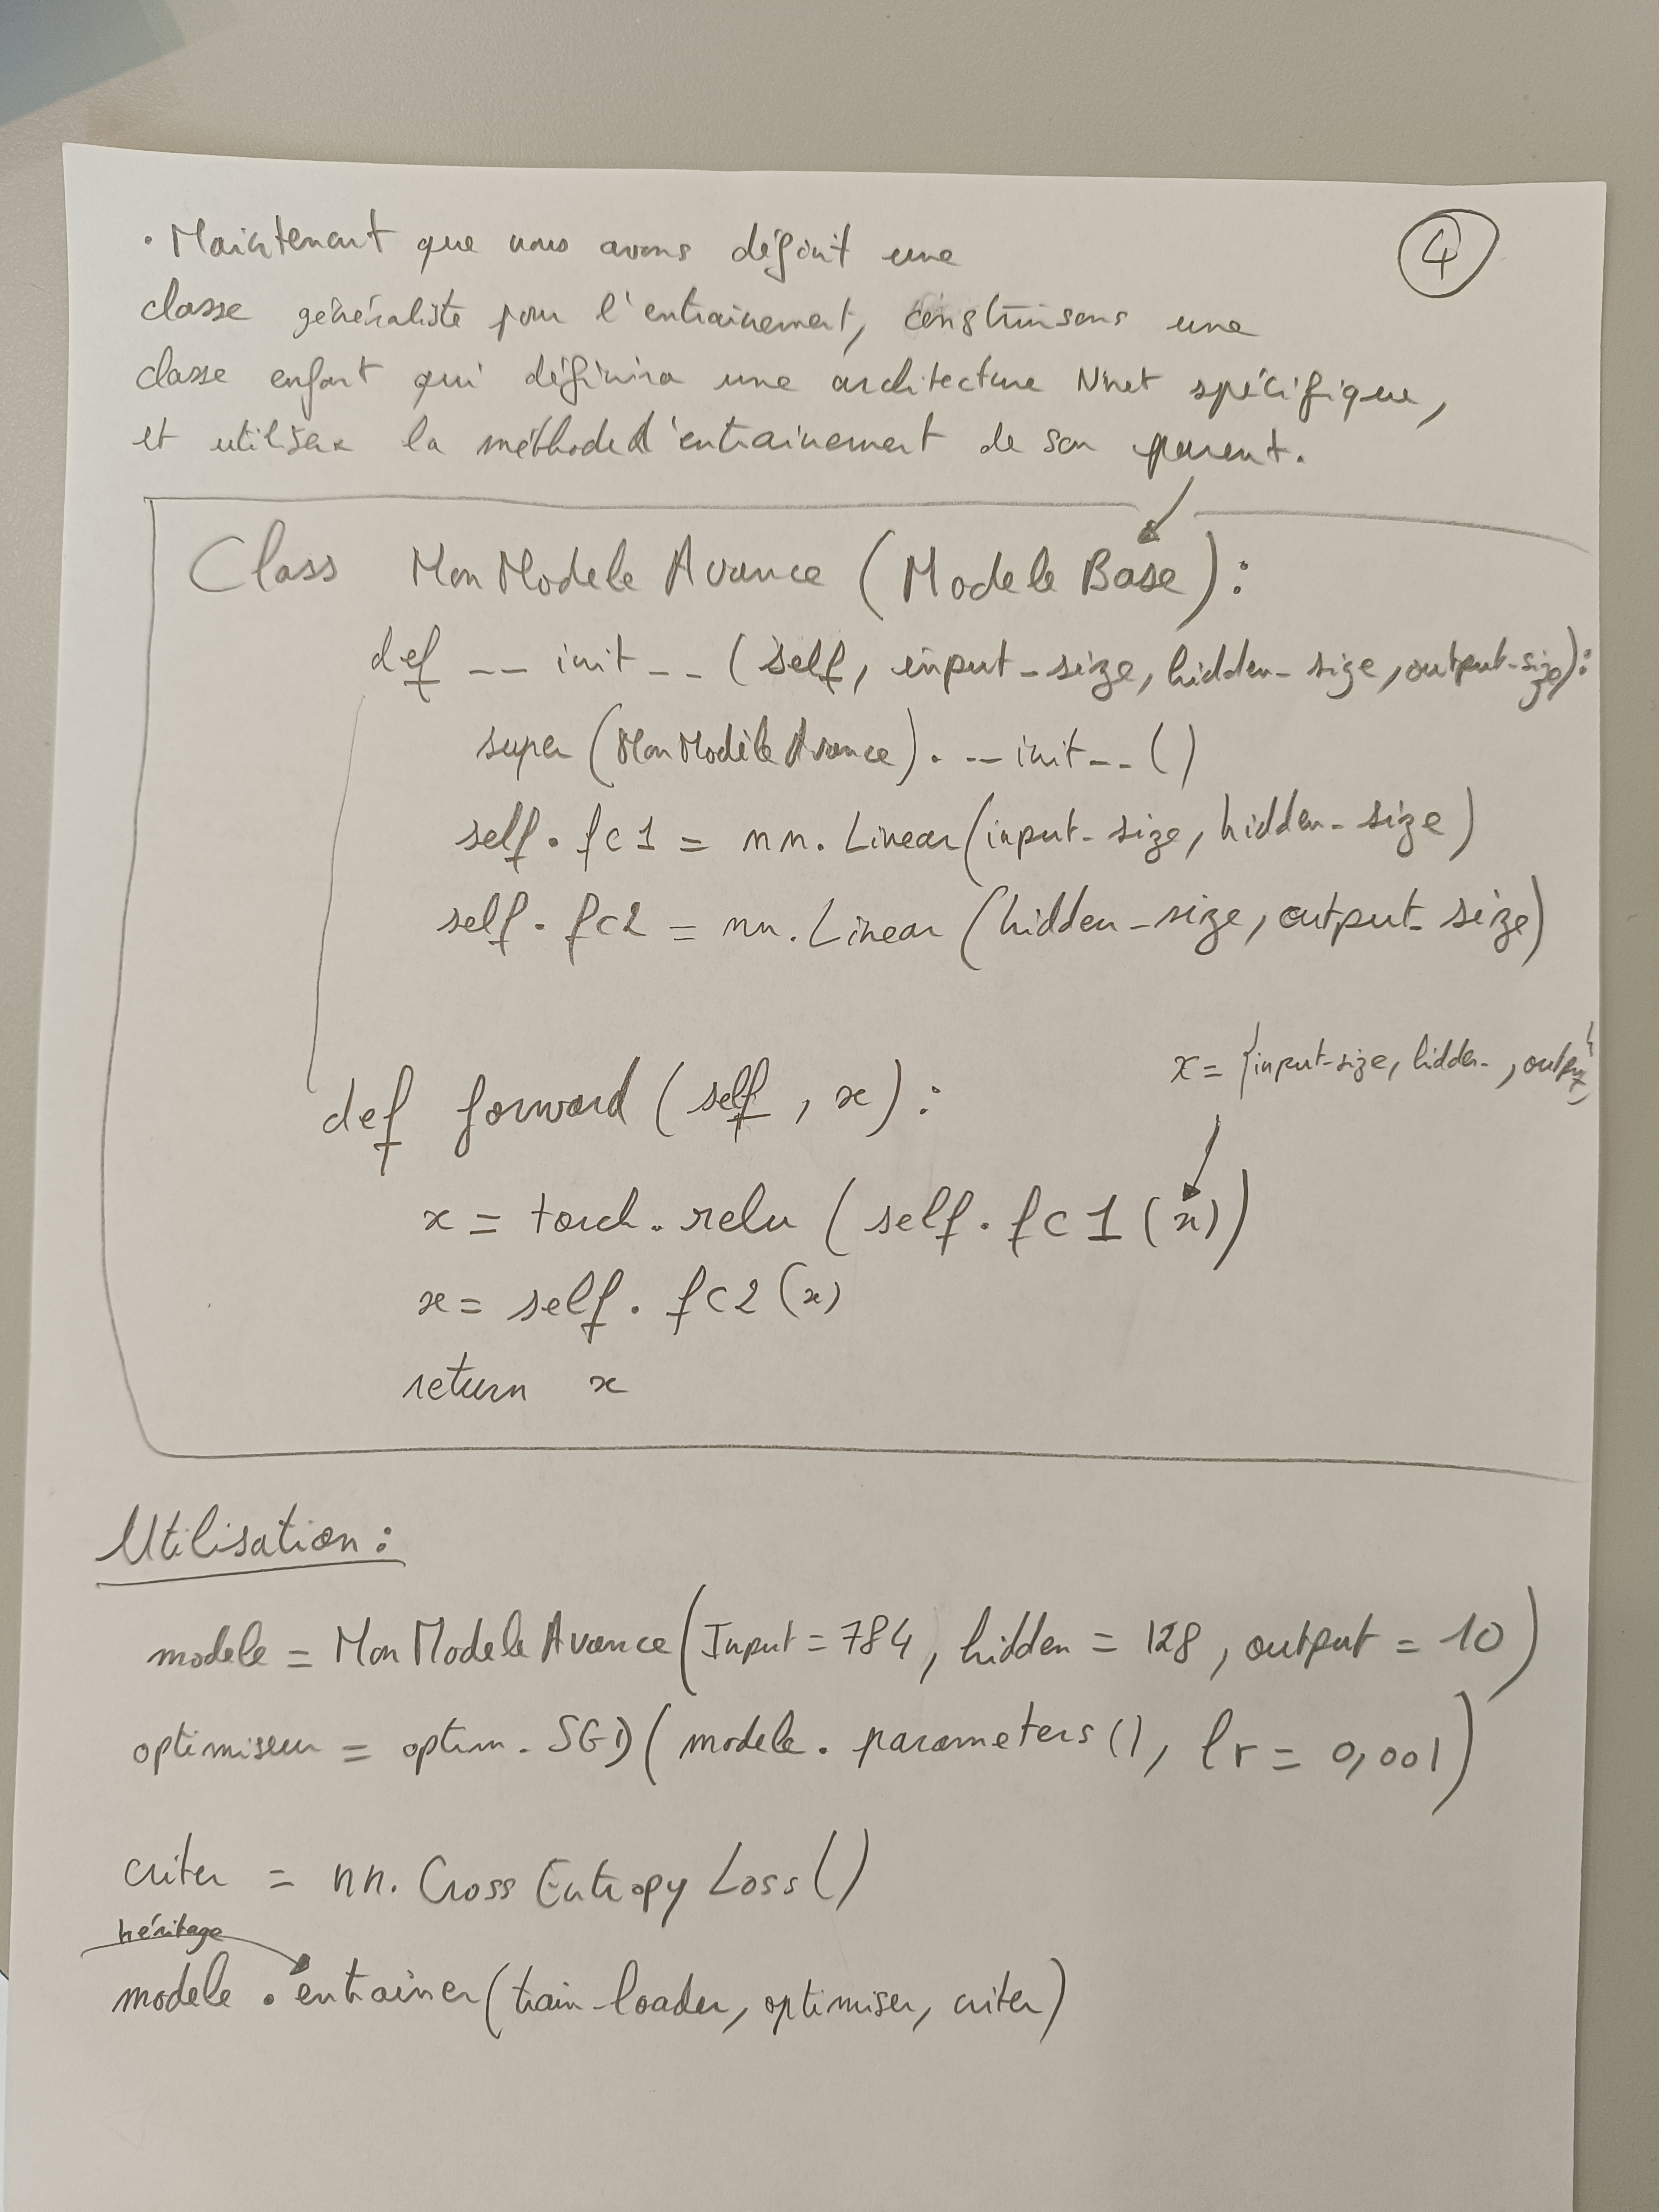 ④
• Maintenant que nous avons définit une
classe généraliste pour l'entrainement, construisons une
classe enfant qui définira une architecture Nnet spécifique,
et utiliser la méthode d'entrainement de son parent.
Class MonModeleAvance (ModeleBase):
def __init__(self, input_size, hidden_size, output_size):
super(MonModèleAvance).__init__()
self.fc1 = nn.Linear(input_size, hidden_size)
self.fc2 = nn.Linear(hidden_size, output_size)
x = {input-size, hidden-, output}
def forward(self, x):
x = torch.relu(self.fc1(x))
x = self.fc2(x)
return x
Utilisation:
modele = MonModeleAvance(Input=784, hidden=128, output=10)
optimiseur = optim.SGD(modele.parameters(), lr=0,001)
criter = nn.CrossEntropyLoss()
héritage
modele.entrainer(train-loader, optimiser, criter)